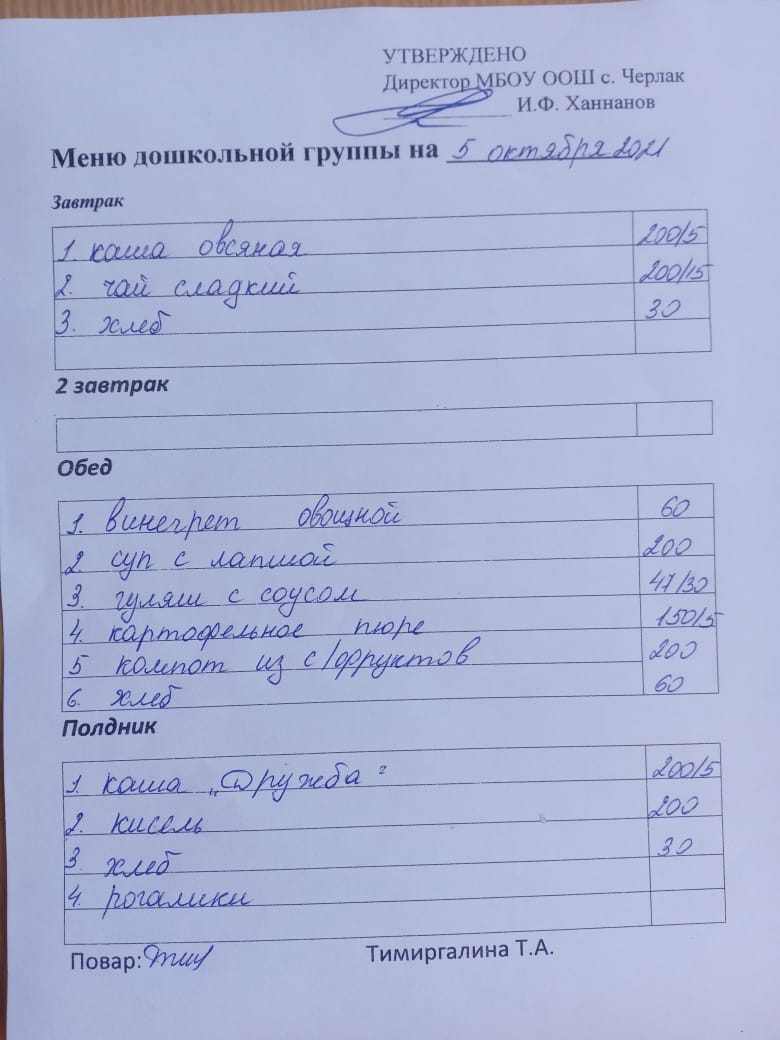 УТВЕРЖДЕНО
Директор МБОУ ООШ с. Черлак
И.Ф. Ханнанов
Меню дошкольной группы на 5 октября 2021
Завтрак
1. каша овсяная 200/5
2. чай сладкий 200/15
3. хлеб 30
2 завтрак
Обед
1. винегрет овощной 60
2 суп с лапшой 200
3. гуляш с соусом 47/30
4. картофельное пюре 150/5
5 компот из с/фруктов 200
6. хлеб 60
Полдник
1. каша „Дружба" 200/5
2. кисель 200
3 хлеб 30
4. рогалики
Повар: Тимиргалина Т.А.